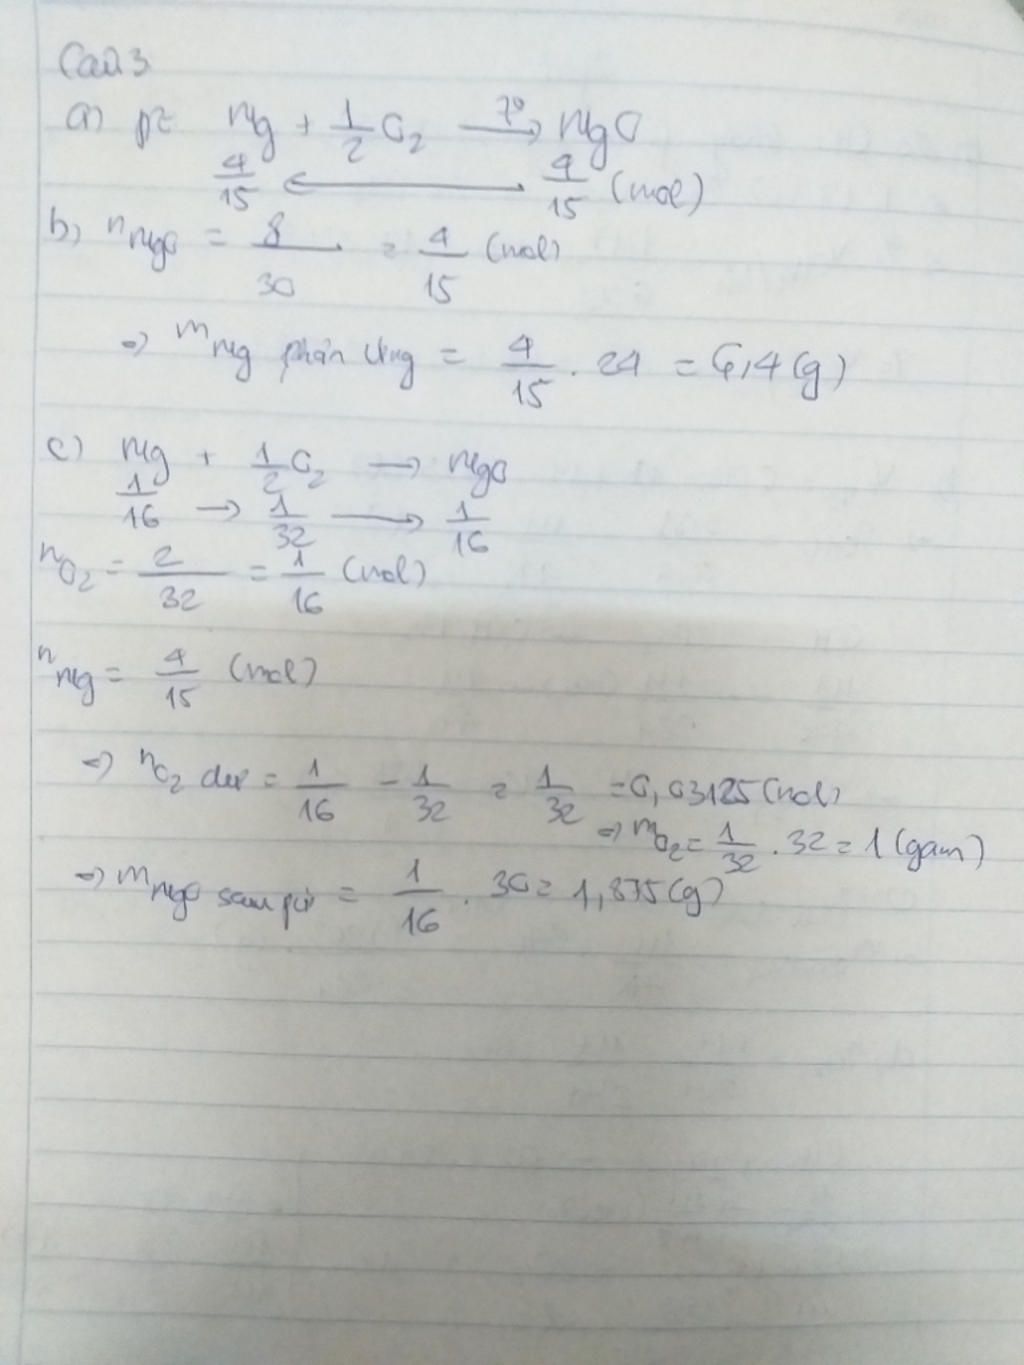 Câu 3
a) pt Mg + 1/2 O2 —7°→ MgO
4/15 ⟵⟶ 4/15 (mol)
b) nMgO = 8/30 = 4/15 (mol)
=> mMg phản ứng = 4/15 . 24 = 6,4 (g)
c) Mg + 1/2 O2 → MgO
1/16 → 1/32 → 1/16
nO2 = 2/32 = 1/16 (mol)
nMg = 4/15 (mol)
=> nO2 dư = 1/16 - 1/32 = 1/32 = 0,03125 (mol)
=> mO2 = 1/32 . 32 = 1 (gam)
=> mMgO sau pứ = 1/16 . 30 = 1,875 (g)